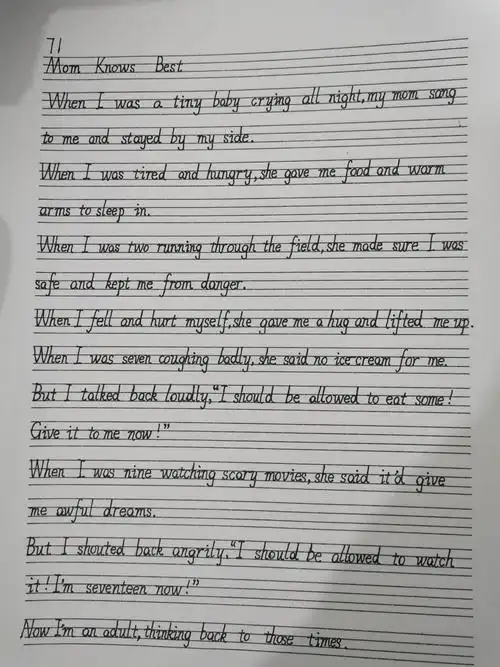 71
Mom Knows Best
When I was a tiny baby crying all night,my mom sang
to me and stayed by my side.
When I was tired and hungry,she gave me food and warm
arms to sleep in.
When I was two running through the field,she made sure I was
safe and kept me from danger.
When I fell and hurt myself,she gave me a hug and lifted me up.
When I was seven coughing badly,she said no ice cream for me.
But I talked back loudly,"I should be allowed to eat some!
Give it to me now!"
When I was nine watching scary movies,she said it'd give
me awful dreams.
But I shouted back angrily,"I should be allowed to watch
it!I'm seventeen now!"
Now I'm an adult,thinking back to those times.